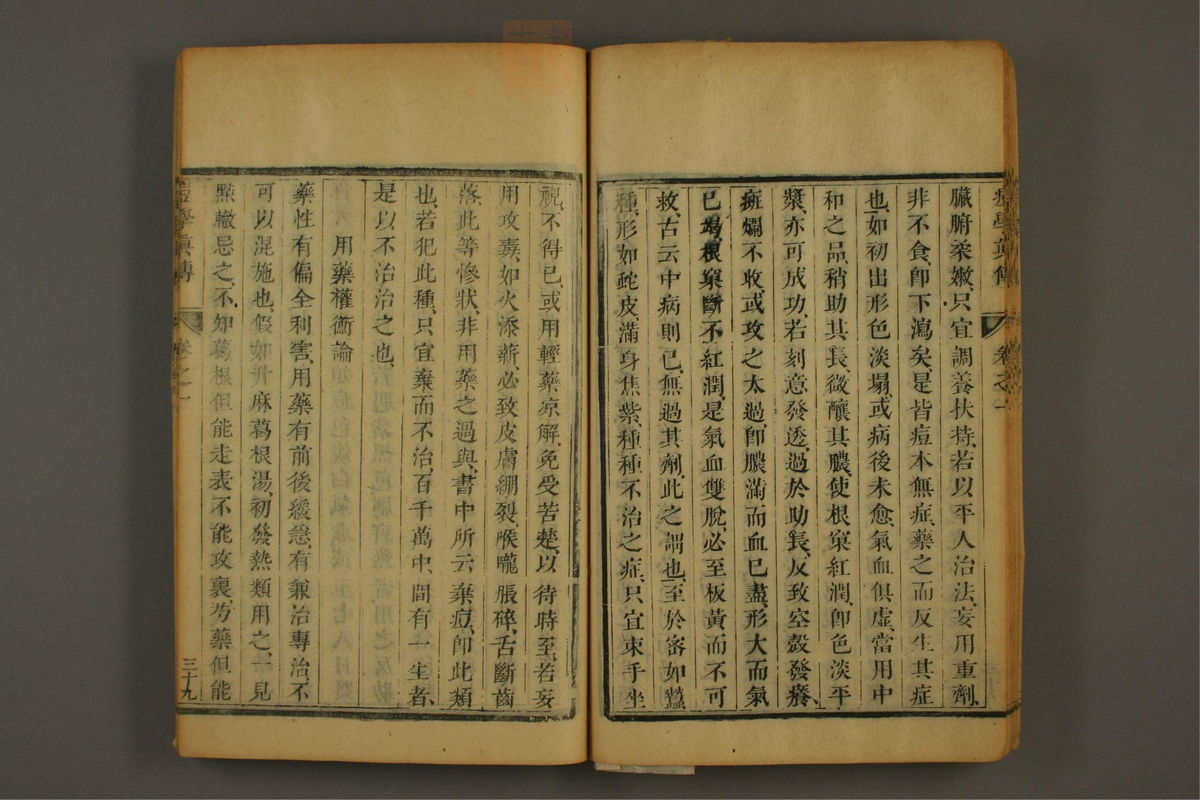 臟腑柔嫩、只宜調養扶持、若以平人治法、妄用重劑、
非不食、卽下瀉矣、是皆痘本無症、藥之而反生其症
也、如初出形色淡塌、或病後未愈、氣血俱虛、當用中
和之品、稍助其長、微釀其膿、使根窠紅潤、卽色淡平
漿、亦可成功、若刻意發透、過於助長、反致空殼發癢、
斑爛不收、或攻之太過、卽膿滿而血已盡、形大而氣
已竭、根窠斷不紅潤、是氣血雙脫、必至板黃而不可
救、古云中病則已、無過其劑、此之謂也、至於密如蠶
種、形如蛇皮、滿身焦紫、種種不治之症、只宜束手坐
痘學眞傳
卷之一
視、不得已、或用輕藥凉解、免受苦楚、以待時至、若妄
用攻毒、如火添薪、必致皮膚綳裂、喉嚨脹碎、舌斷齒
落、此等慘狀、非用藥之過與、書中所云棄痘、卽此類
也、若犯此種、只宜棄而不治、百千萬中、間有一生者、
是以不治治之也、
用藥權衡論
藥性有偏全利害、用藥有前後緩急、有兼治專治、不
可以混施也、假如升麻葛根湯、初發熱類用之、一見
點輙忌之、不知葛根但能走表、不能攻裏、芍藥但能
痘學眞傳
卷之一
三十九